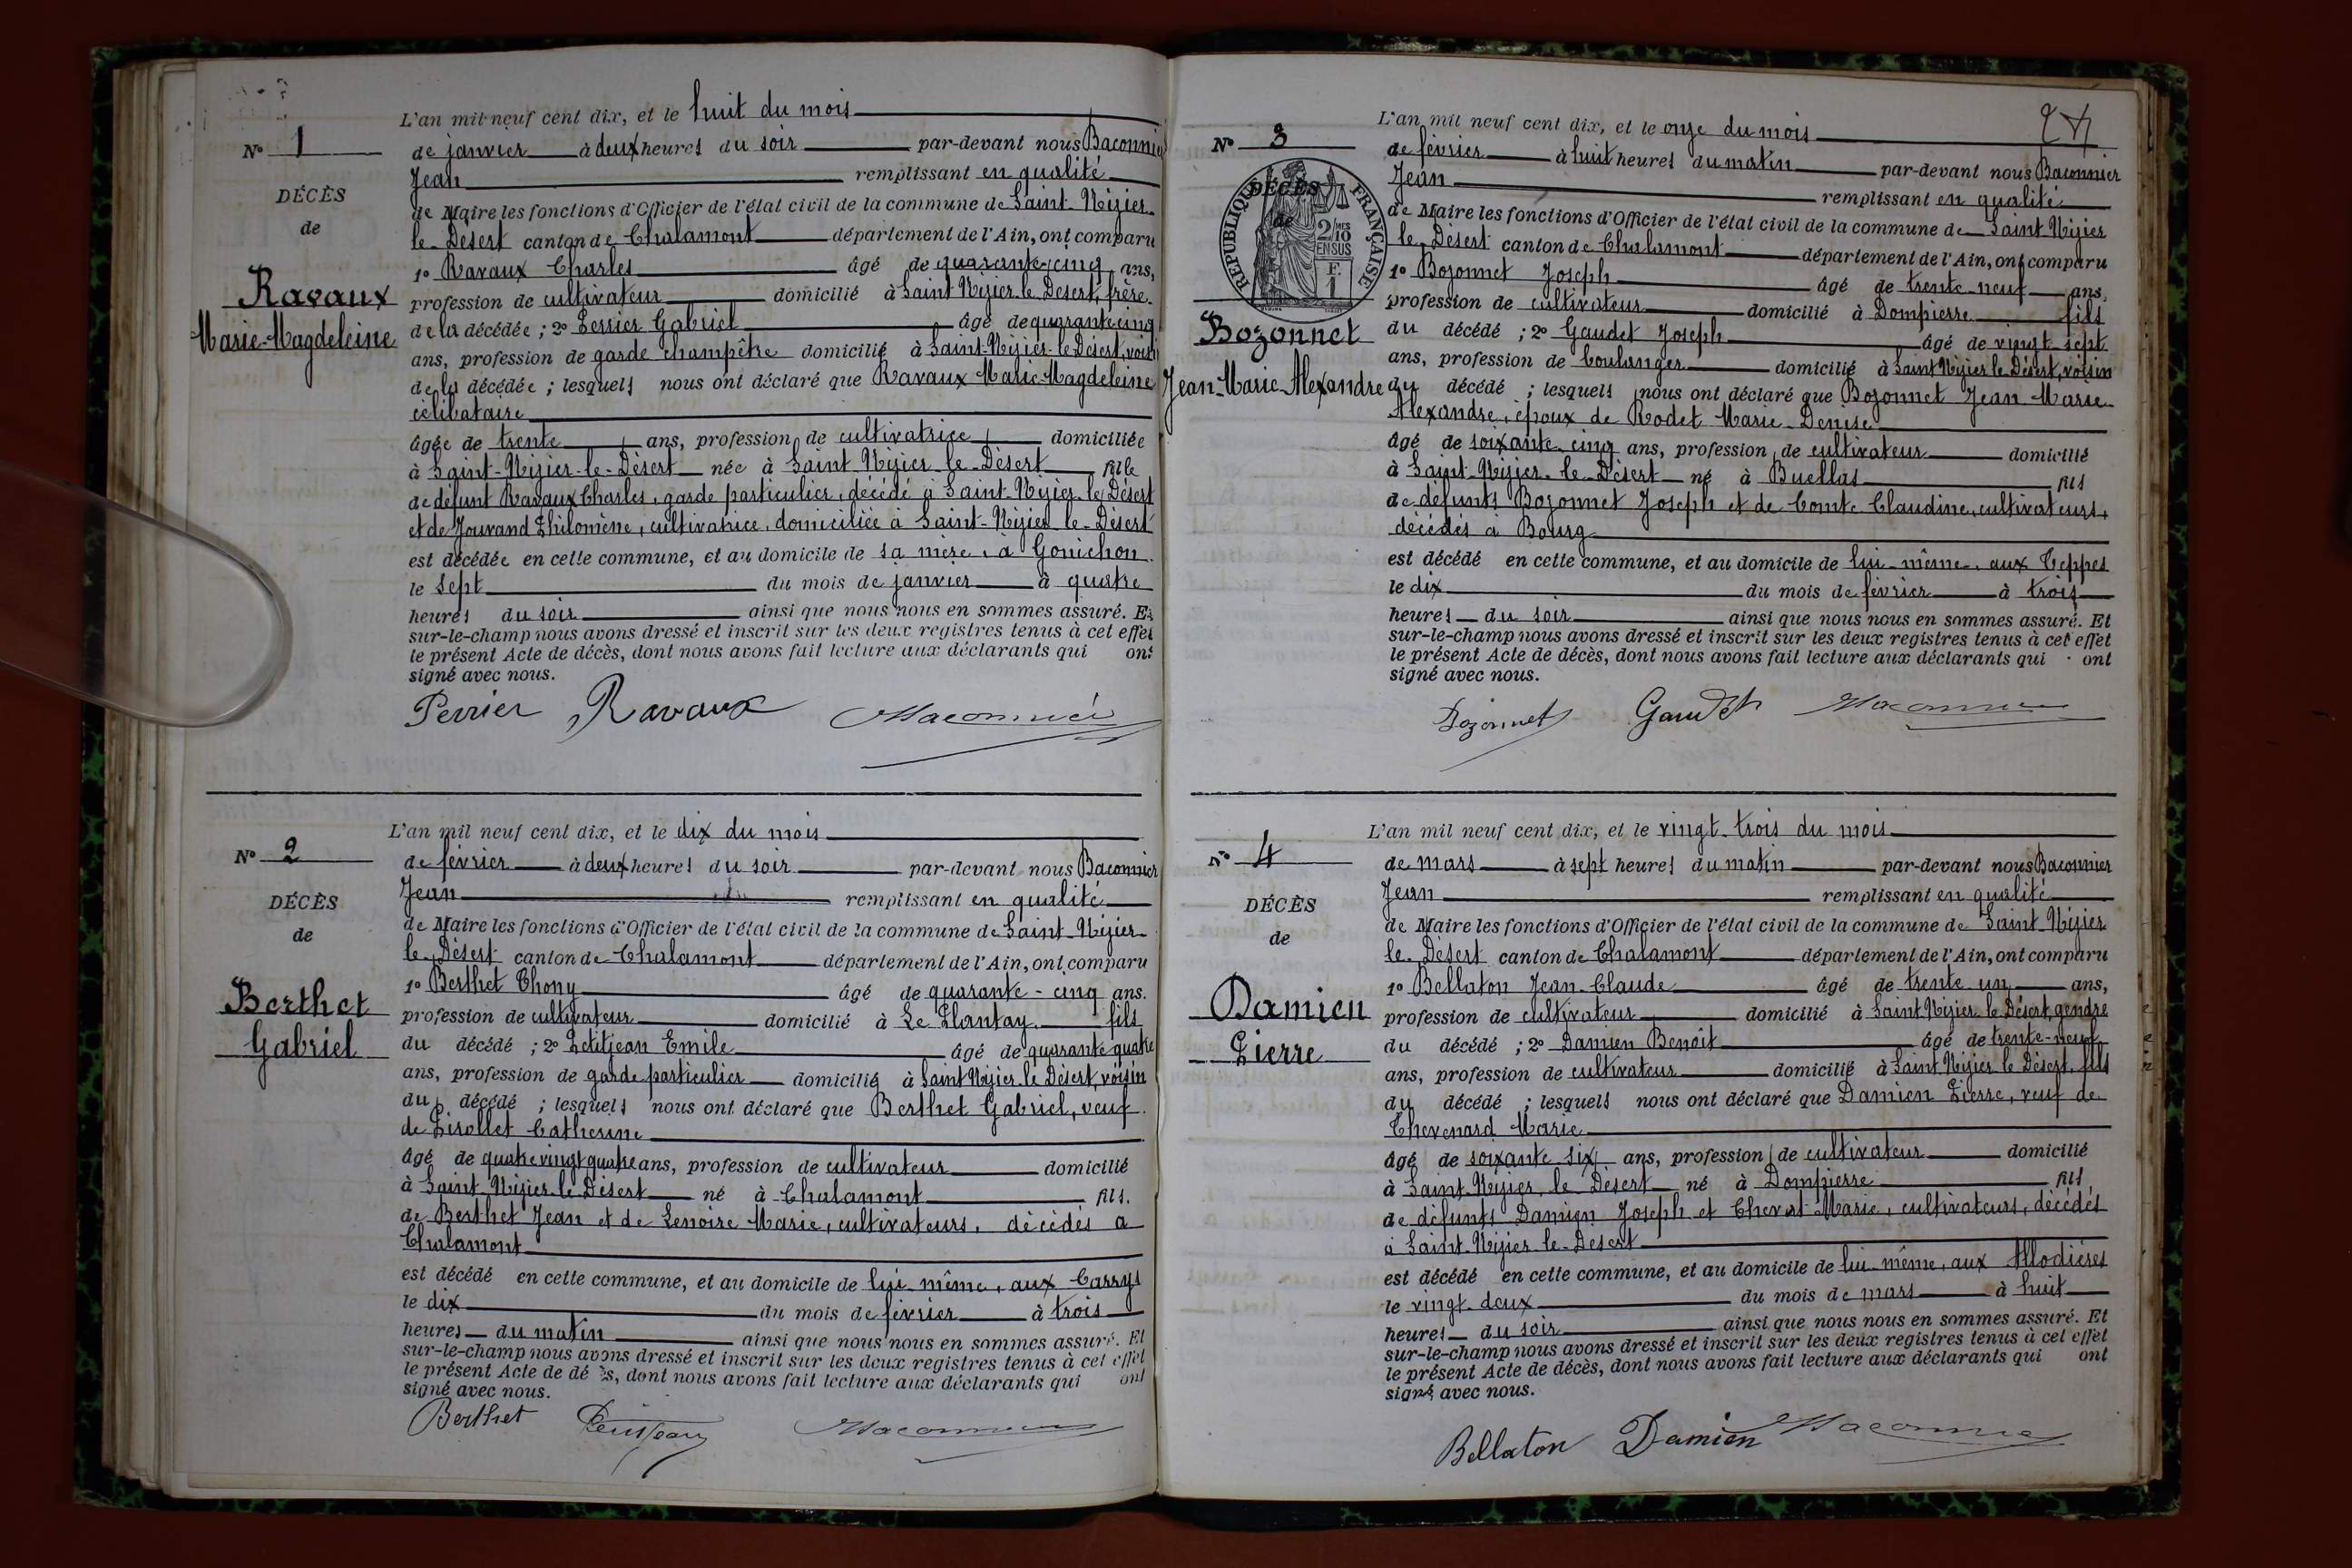 N° 1
DÉCÈS
de
Ravaux
Marie-Magdeleine
L'an mil neuf cent dix, et le huit du mois
de janvier à deux heures du soir par-devant nous Baconnier
Jean remplissant en qualité
de Maire les fonctions d'Officier de l'état civil de la commune de Saint-Nizier-
le-Désert canton de Chalamont département de l'Ain, ont comparu
1° Ravaux Charles âgé de quarante-cinq ans,
profession de cultivateur domicilié à Saint Nizier-le-Désert, frère
de la décédée ; 2° Perrier Gabriel âgé de quarante cinq
ans, profession de garde champêtre domicilié à Saint-Nizier-le-Désert, voisin
de la décédée ; lesquels nous ont déclaré que Ravaux Marie-Magdeleine
célibataire
âgée de trente ans, profession de cultivatrice domiciliée
à Saint-Nizier-le-Désert née à Saint Nizier-le-Désert fille
de défunt Ravaux Charles, garde particulier, décédé à Saint-Nizier-le-Désert
et de Jouvand Philomène, cultivatrice, domiciliée à Saint-Nizier-le-Désert
est décédée en cette commune, et au domicile de sa mère, à Gonichon
le sept du mois de janvier à quatre
heures du soir ainsi que nous nous en sommes assuré. Et
sur-le-champ nous avons dressé et inscrit sur les deux registres tenus à cet effet
le présent Acte de décès, dont nous avons fait lecture aux déclarants qui ont
signé avec nous.
Perrier Ravaux Baconnier
N° 2
DÉCÈS
de
Berthet
Gabriel
L'an mil neuf cent dix, et le dix du mois
de février à deux heures du soir par-devant nous Baconnier
Jean remplissant en qualité
de Maire les fonctions d'Officier de l'état civil de la commune de Saint-Nizier-
le-Désert canton de Chalamont département de l'Ain, ont comparu
1° Berthet Thony âgé de quarante-cinq ans.
profession de cultivateur domicilié à Le Plantay fils
du décédé ; 2° Petitjean Emile âgé de quarante quatre
ans, profession de garde particulier domicilié à Saint Nizier-le Désert, voisin
du décédé ; lesquels nous ont déclaré que Berthet Gabriel, veuf
de Pirollet Catherine
âgé de quatre vingt quatre ans, profession de cultivateur domicilié
à Saint-Nizier-le Désert né à Chalamont fils.
de Berthet Jean et de Lenoire Marie, cultivateurs, décédés à
Chalamont
est décédé en cette commune, et au domicile de lui-même, aux Carrys
le dix du mois de février à trois
heures du matin ainsi que nous nous en sommes assuré. Et
sur-le-champ nous avons dressé et inscrit sur les deux registres tenus à cet effet
le présent Acte de décès, dont nous avons fait lecture aux déclarants qui ont
signé avec nous.
Berthet Petitjean Baconnier
24
N° 3
DÉCÈS
de
RÉPUBLIQUE FRANÇAISE
2/10MES
EN SUS
F.
1
Bozonnet
Jean-Marie-Alexandre
L'an mil neuf cent dix, et le onze du mois
de février à huit heures du matin par-devant nous Baconnier
Jean remplissant en qualité
de Maire les fonctions d'Officier de l'état civil de la commune de Saint-Nizier
le-Désert canton de Chalamont département de l'Ain, ont comparu
1° Bozonnet Joseph âgé de trente-neuf ans,
profession de cultivateur domicilié à Dompierre fils
du décédé ; 2° Gaudet Joseph âgé de vingt sept
ans, profession de boulanger domicilié à Saint Nizier le Désert, voisin
du décédé ; lesquels nous ont déclaré que Bozonnet Jean-Marie-
Alexandre, époux de Rodet Marie-Denise
âgé de soixante-cinq ans, profession de cultivateur domicilié
à Saint-Nizier-le-Désert né à Buellas fils
de défunts Bozonnet Joseph et de Comte Claudine, cultivateurs,
décédés a Bourg
est décédé en cette commune, et au domicile de lui-même, aux Teppes
le dix du mois de février à trois
heures du soir ainsi que nous nous en sommes assuré. Et
sur-le-champ nous avons dressé et inscrit sur les deux registres tenus à cet effet
le présent Acte de décès, dont nous avons fait lecture aux déclarants qui ont
signé avec nous.
Bozonnet Gaudet Baconnier
N° 4
DÉCÈS
de
Damien
Pierre
L'an mil neuf cent dix, et le vingt-trois du mois
de mars à sept heures du matin par-devant nous Baconnier
Jean remplissant en qualité
de Maire les fonctions d'Officier de l'état civil de la commune de Saint-Nizier
le-Désert canton de Chalamont département de l'Ain, ont comparu
1° Bellaton Jean-Claude âgé de trente un ans,
profession de cultivateur domicilié à Saint Nizier le Désert, gendre
du décédé ; 2° Damien Benoit âgé de trente-neuf
ans, profession de cultivateur domicilié à Saint Nizier le Désert, fils
du décédé ; lesquels nous ont déclaré que Damien Pierre, veuf de
Thevenard Marie
âgé de soixante six ans, profession de cultivateur domicilié
à Saint-Nizier-le Désert né à Dompierre fils
de défunts Damien Joseph et Chevat Marie, cultivateurs, décédés
à Saint-Nizier-le-Désert
est décédé en cette commune, et au domicile de lui-même, aux Allodières
le vingt-deux du mois de mars à huit
heures du soir ainsi que nous nous en sommes assuré. Et
sur-le-champ nous avons dressé et inscrit sur les deux registres tenus à cet effet
le présent Acte de décès, dont nous avons fait lecture aux déclarants qui ont
signé avec nous.
Bellaton Damien Baconnier